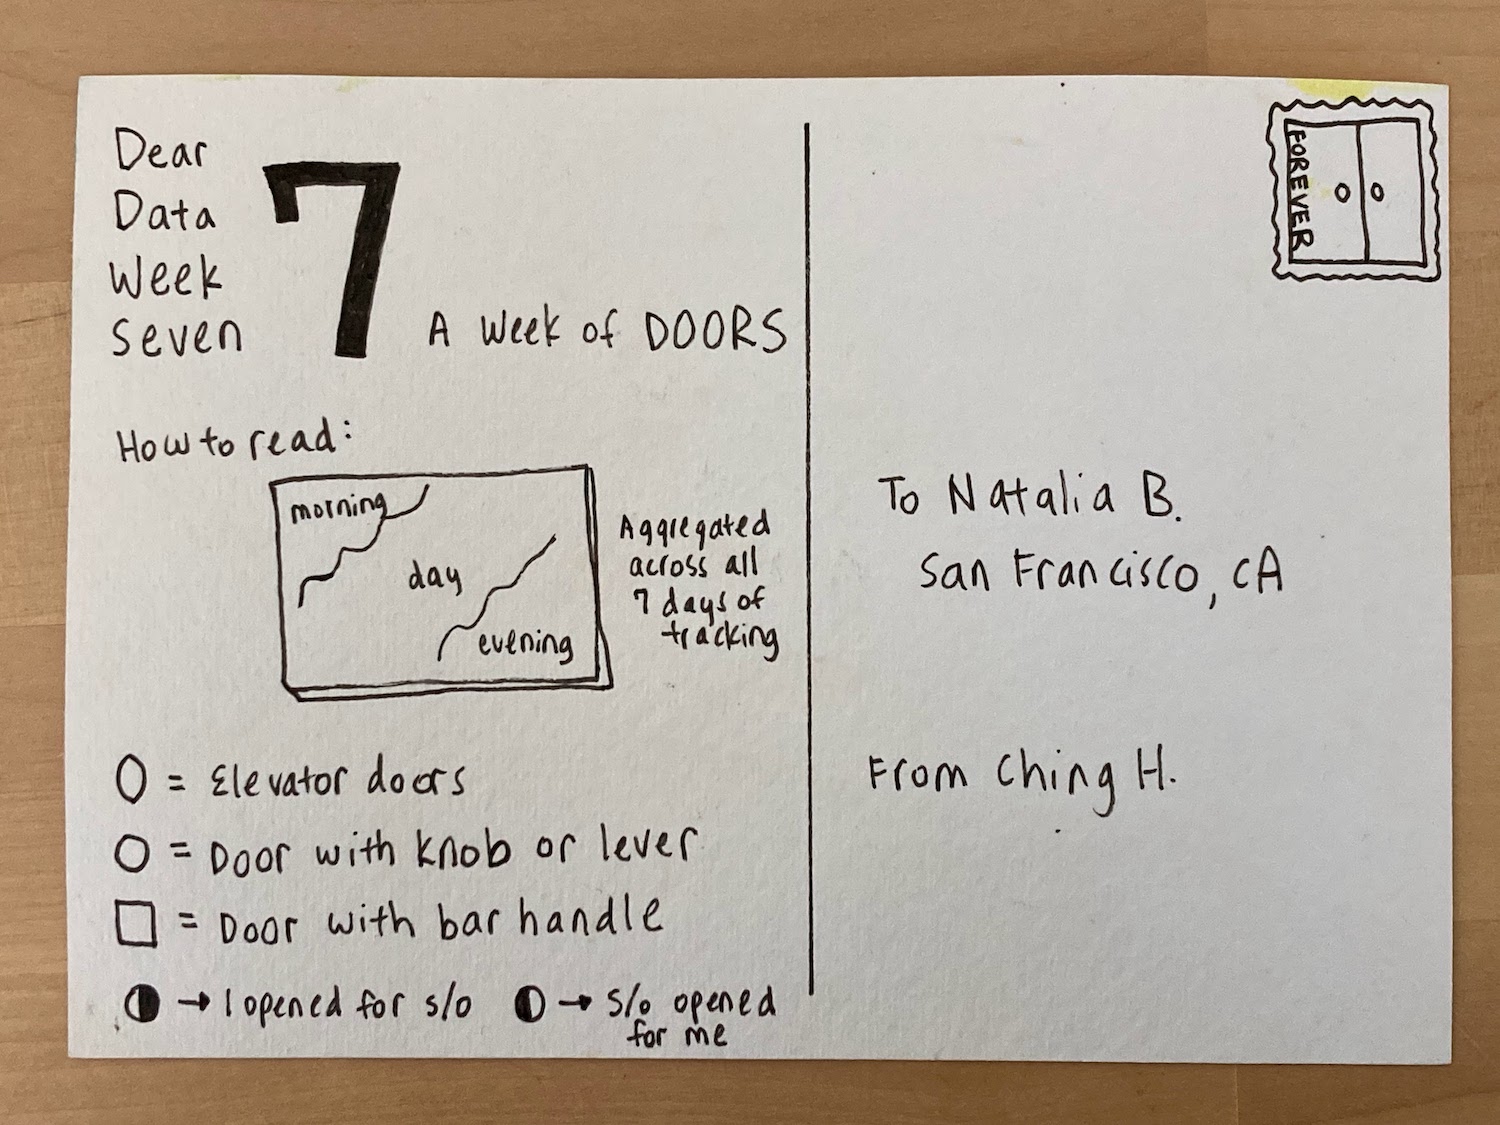 Dear
Data
Week
Seven
7
A Week of DOORS
How to read:
morning
day
evening
Aggregated
across all
7 days of
tracking
= Elevator doors
= Door with knob or lever
= Door with bar handle
→ I opened for s/o
→ s/o opened
for me
FOREVER
To Natalia B.
San Francisco, CA
From Ching H.